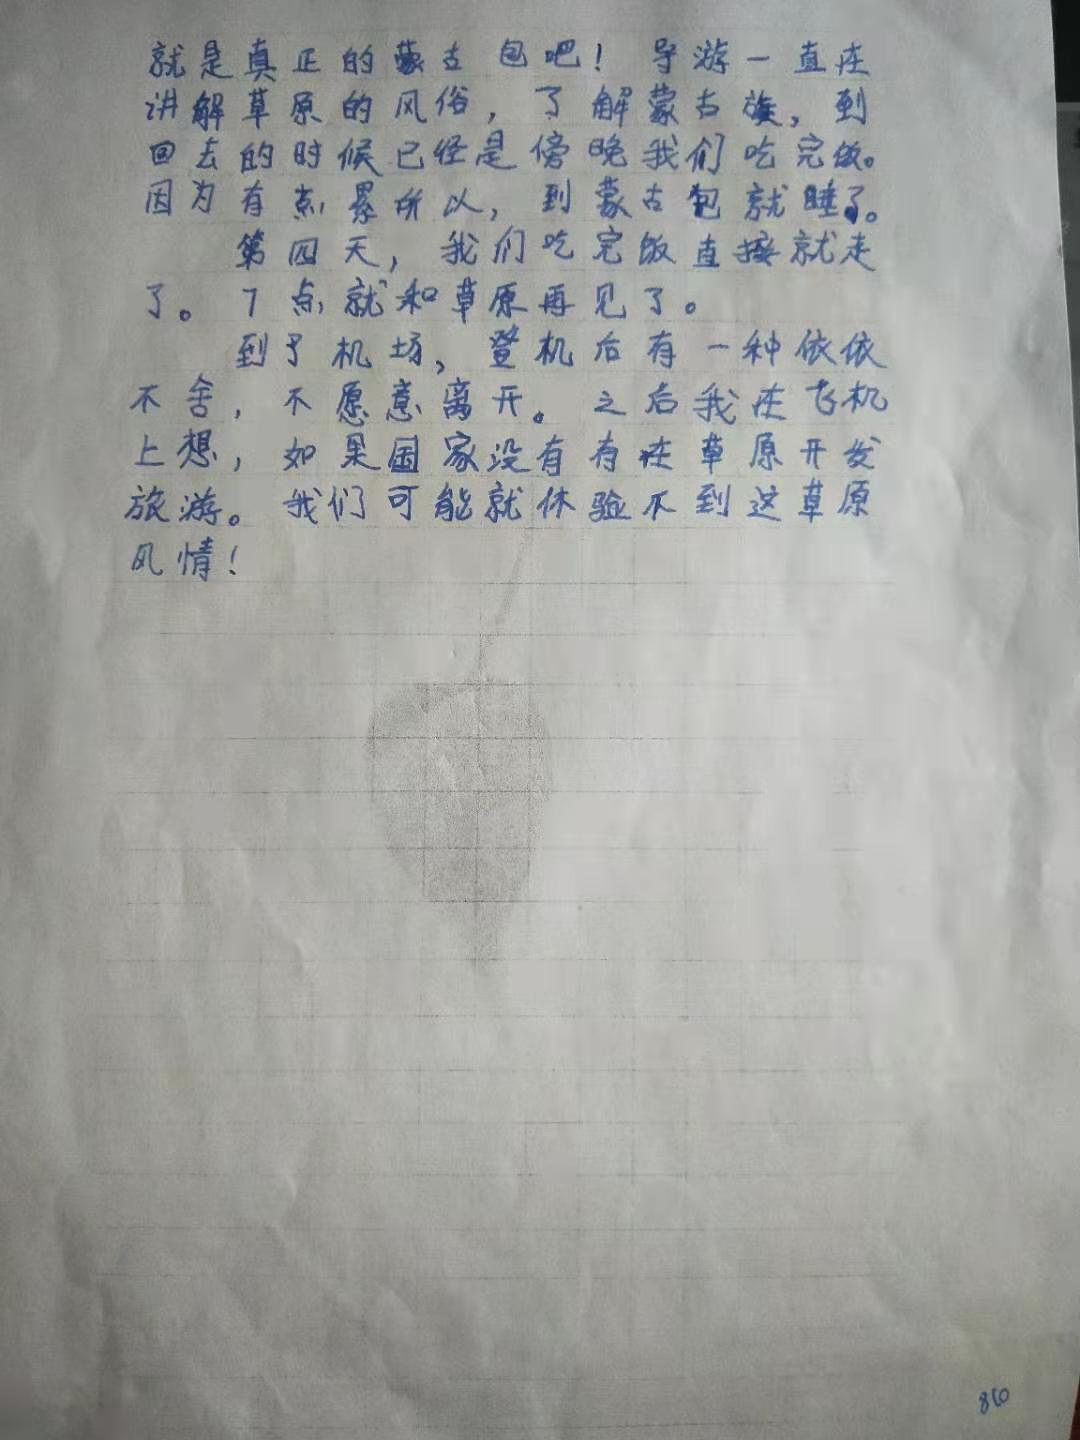 就是真正的蒙古包吧！导游一直在
讲解草原的风俗，了解蒙古族，到
回去的时候已经是傍晚我们吃完饭。
因为有点累所以，到蒙古包就睡了。
第四天，我们吃完饭直接就走
了。7点就和草原再见了。
到了机场，登机后有一种依依
不舍，不愿意离开。之后我在飞机
上想，如果国家没有有在草原开发
旅游。我们可能就体验不到这草原
风情！